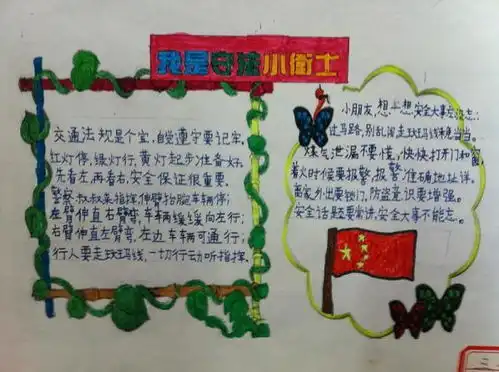 我是守法小衛士
交通法规是个宝,自觉遵守要记牢。
红灯停,绿灯行,黄灯起步准备好。
先看左,再看右,安全保证很重要。
警察叔叔来指挥伸臂抬腕车辆停;
左臂伸直右臂弯,车辆缓缓向左行;
右臂伸直左臂弯,左边车辆可通行;
行人要走斑马线,一切行动听指挥。
小朋友,想一想,安全大事忘:
过马路,别乱闯走斑马线稳当当。
煤气泄漏不要慌,快快打开门和窗
着火时候要报警,报警准确地址详。
离家外出要锁门,防盗意识要增强。
安全话题要常讲,安全大事不能忘。
三